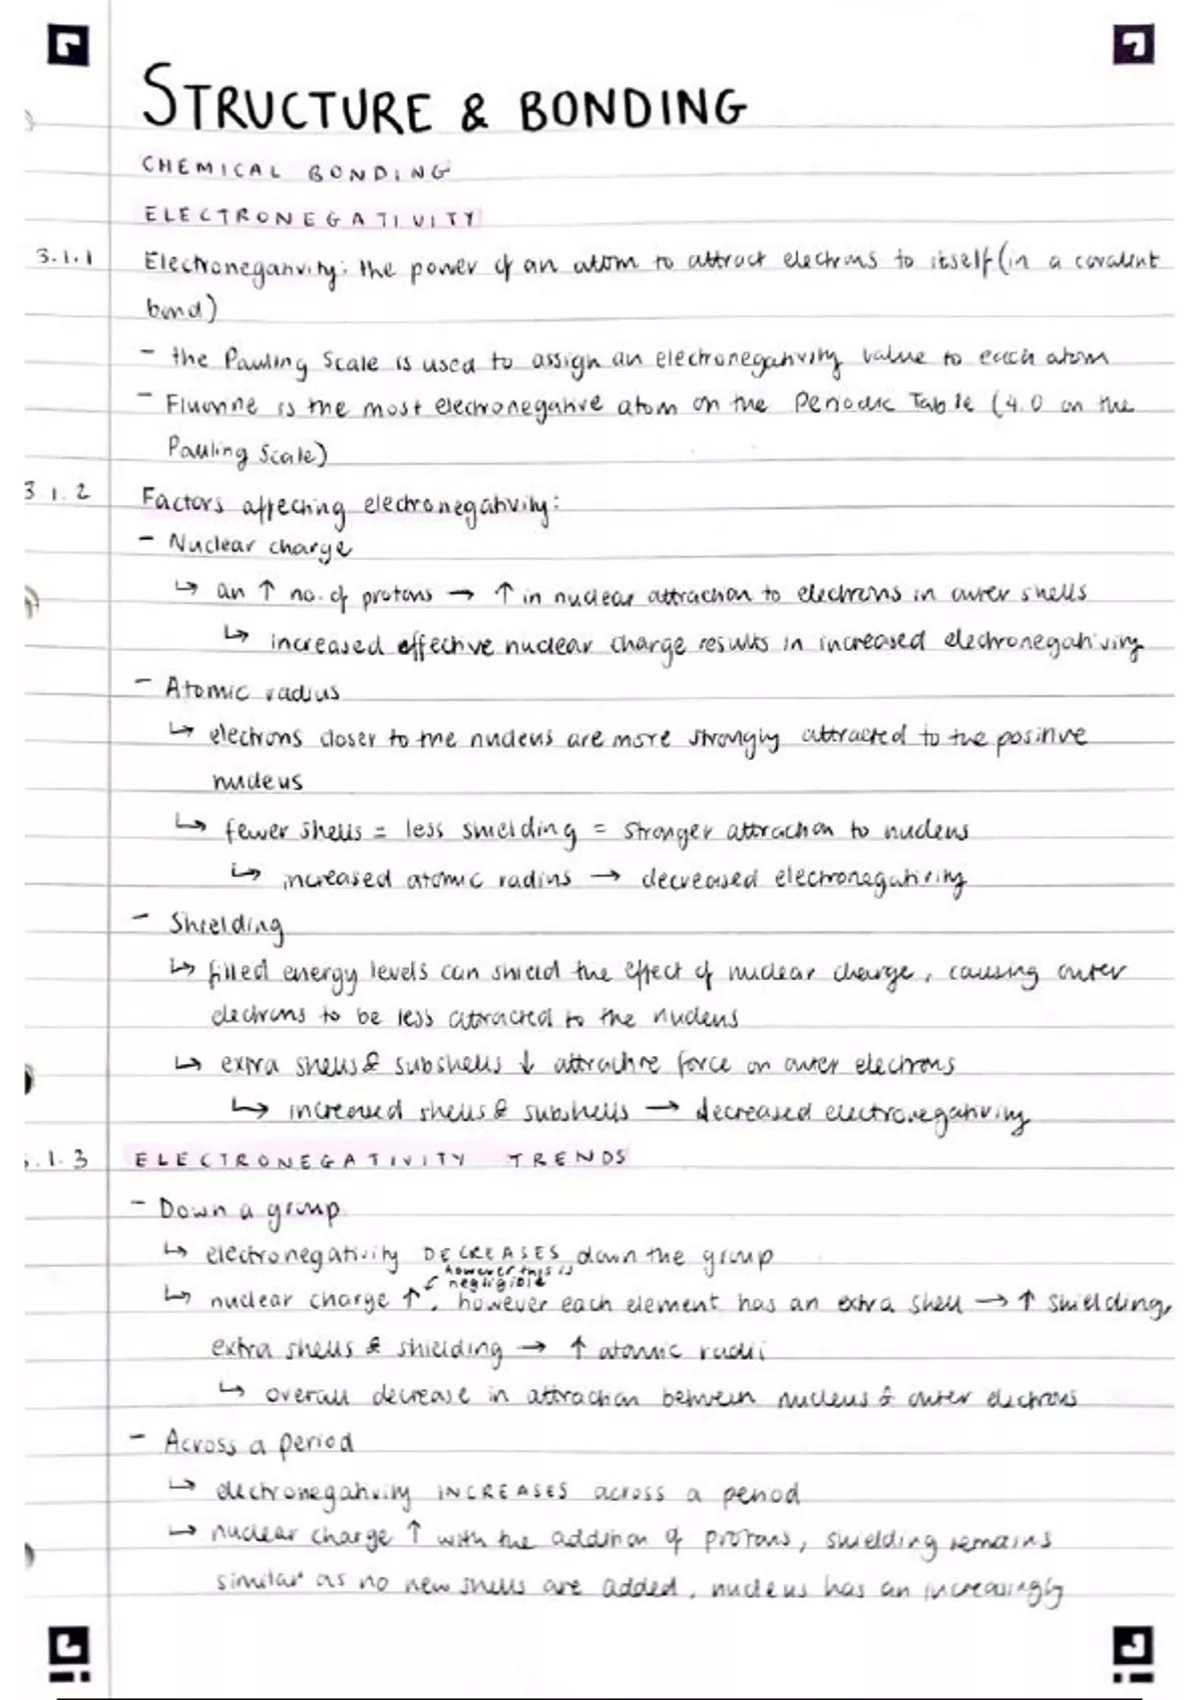 STRUCTURE & BONDING
CHEMICAL BONDING
ELECTRONEGATIVITY
3.1.1 Electronegativity: the power of an atom to attract electrons to itself (in a covalent
bond)
- the Pauling Scale is used to assign an electronegativity value to each atom
- Fluorine is the most electronegative atom on the Periodic Table (4.0 on the
Pauling Scale)
3.1.2 Factors affecting electronegativity:
- Nuclear charge
↳ an ↑ no. of protons → ↑ in nuclear attraction to electrons in outer shells
↳ increased effective nuclear charge results in increased electronegativity
- Atomic radius
↳ electrons closer to the nucleus are more strongly attracted to the positive
nucleus
↳ fewer shells = less shielding = stronger attraction to nucleus
↳ increased atomic radius → decreased electronegativity
- Shielding
↳ filled energy levels can shield the effect of nuclear charge, causing outer
electrons to be less attracted to the nucleus
↳ extra shells & subshells ↓ attractive force on outer electrons
↳ increased shells & subshells → decreased electronegativity
.1.3 ELECTRONEGATIVITY TRENDS
- Down a group
↳ electronegativity DECREASES down the group
however this is
negligible
↳ nuclear charge ↑, however each element has an extra shell → ↑ shielding,
extra shells & shielding → ↑ atomic radii
↳ overall decrease in attraction between nucleus & outer electrons
- Across a period
↳ electronegativity INCREASES across a period
↳ nuclear charge ↑ with the addition of protons, shielding remains
similar as no new shells are added, nucleus has an increasingly